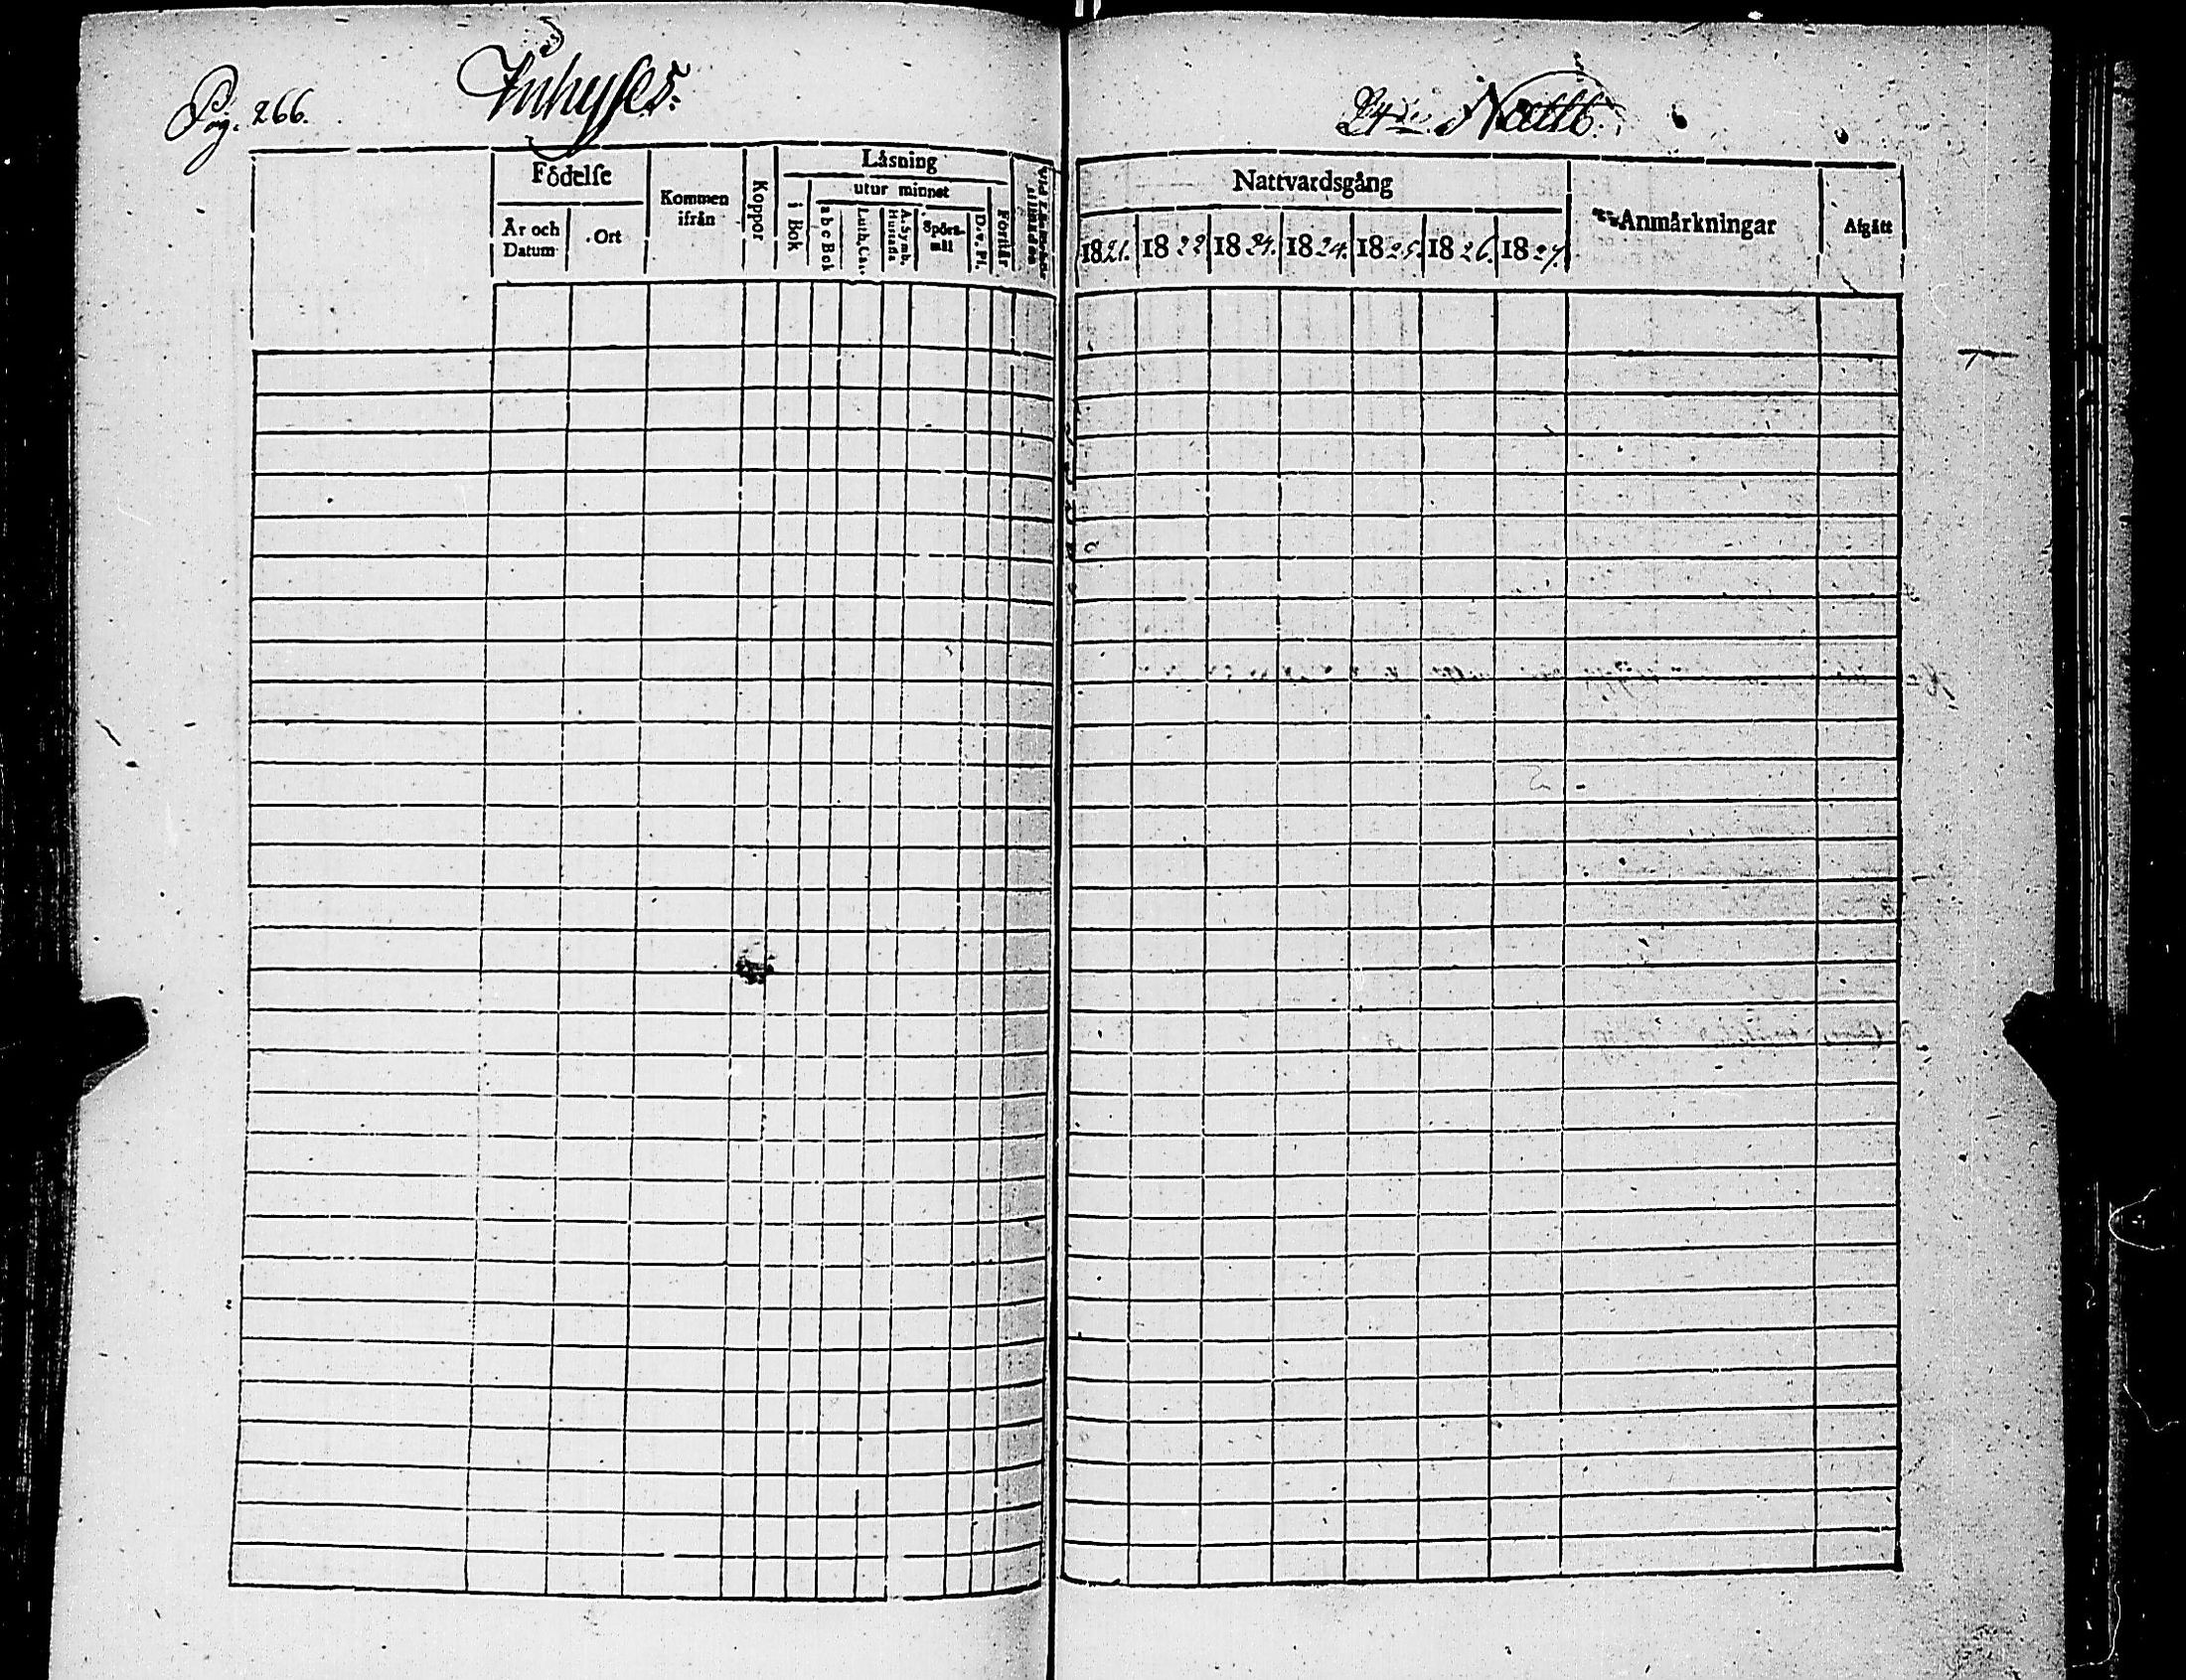 Pag. 266.
Inhyses.
Födelse
År och Datum
Ort
Kommen ifrån
Koppor
Läsning
i Bok
utur minnet
a b c Bok
Luth. Cat.
A. Symb. Hustafla
Spörsmål
Dav. Ps.
Förstår
Nattb.
Nattvardsgång
1821.
1822
1823.
1824.
1825.
1826.
1827.
Anmärkningar
Afgått